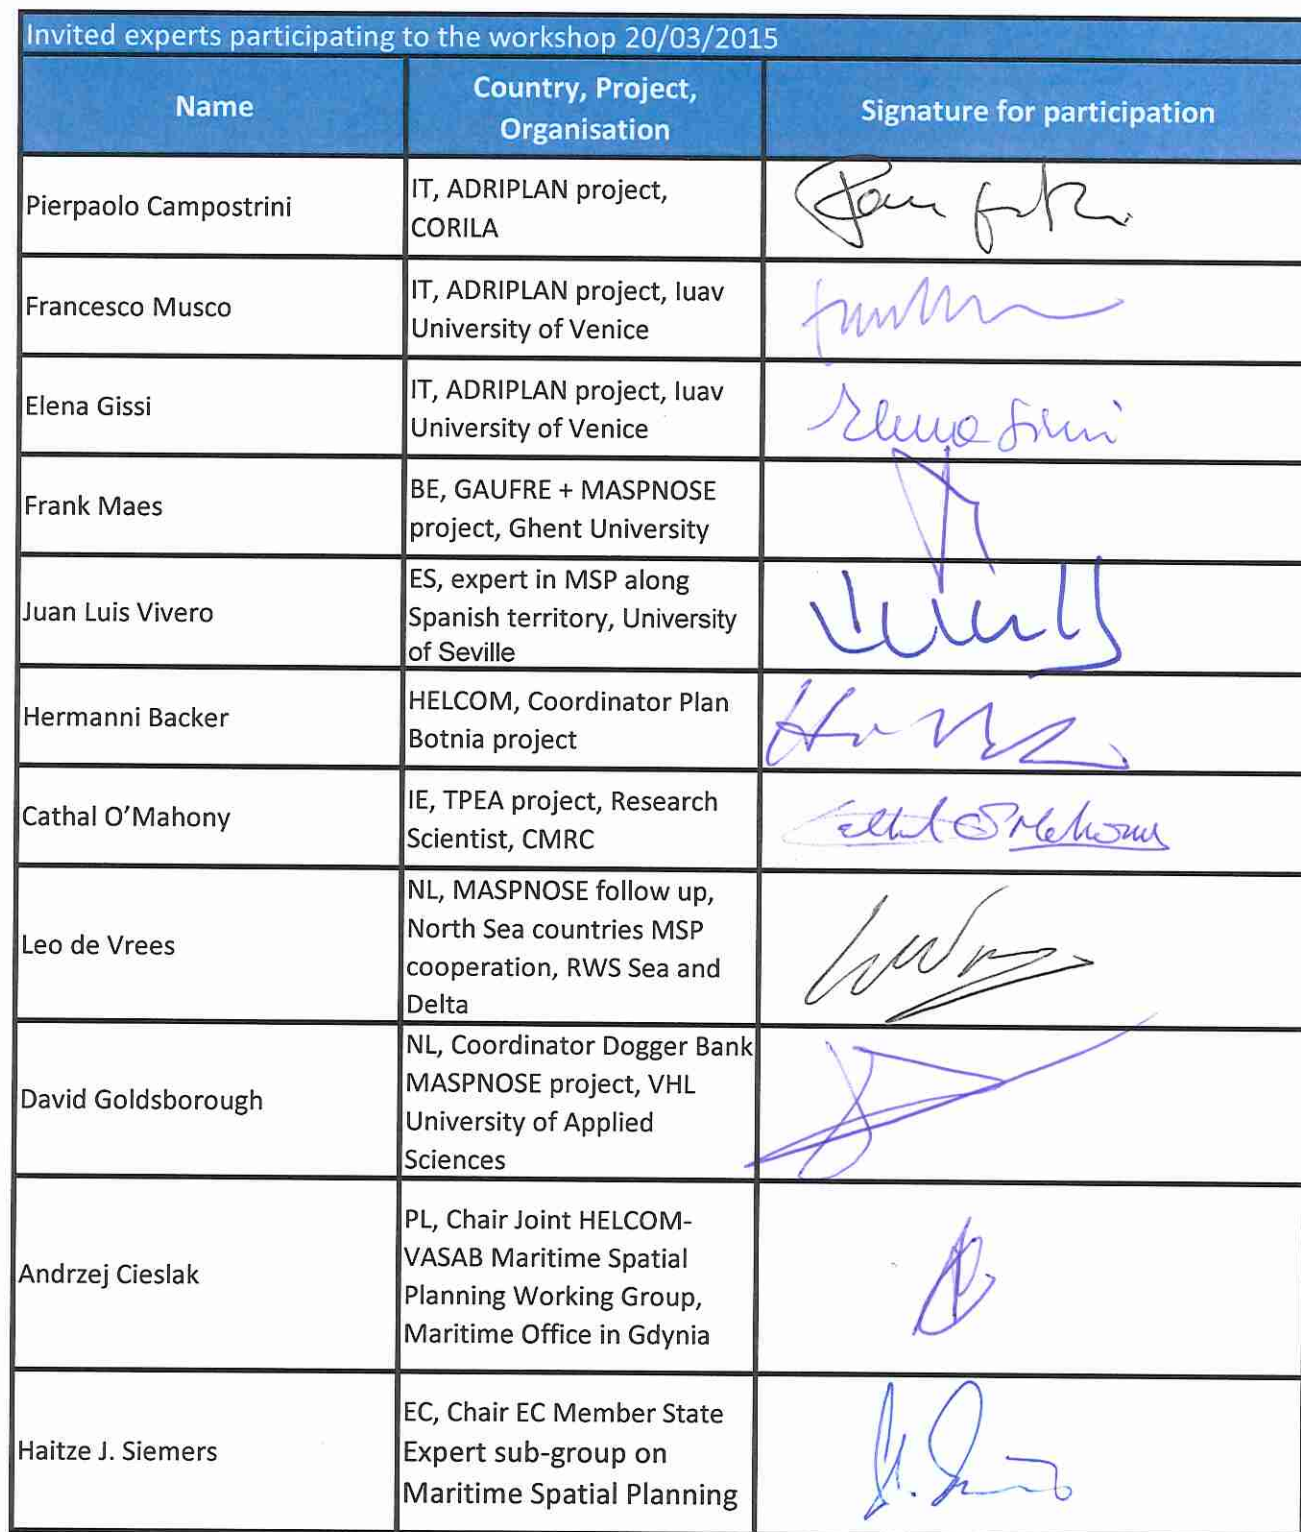 Invited experts participating to the workshop 20/03/2015
Name
Country, Project,
Organisation
Signature for participation
Pierpaolo Campostrini
IT, ADRIPLAN project,
CORILA
Francesco Musco
IT, ADRIPLAN project, Iuav
University of Venice
Elena Gissi
IT, ADRIPLAN project, Iuav
University of Venice
Elena Gissi
Frank Maes
BE, GAUFRE + MASPNOSE
project, Ghent University
Juan Luis Vivero
ES, expert in MSP along
Spanish territory, University
of Seville
Hermanni Backer
HELCOM, Coordinator Plan
Botnia project
Cathal O’Mahony
IE, TPEA project, Research
Scientist, CMRC
Cathal O'Mahony
Leo de Vrees
NL, MASPNOSE follow up,
North Sea countries MSP
cooperation, RWS Sea and
Delta
David Goldsborough
NL, Coordinator Dogger Bank
MASPNOSE project, VHL
University of Applied
Sciences
Andrzej Cieslak
PL, Chair Joint HELCOM-
VASAB Maritime Spatial
Planning Working Group,
Maritime Office in Gdynia
Haitze J. Siemers
EC, Chair EC Member State
Expert sub-group on
Maritime Spatial Planning